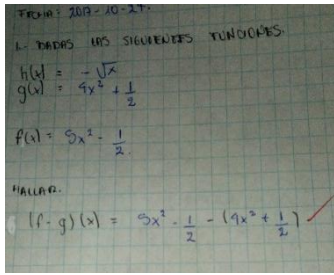 FECHA: 2017-10-27.
1.- DADAS LAS SIGUIENTES FUNCIONES.
h(x) = -√x
g(x) = 4x² + 1/2
f(x) = 5x² - 1/2.
HALLAR.
(f-g)(x) = 5x² - 1/2 - (4x² + 1/2)